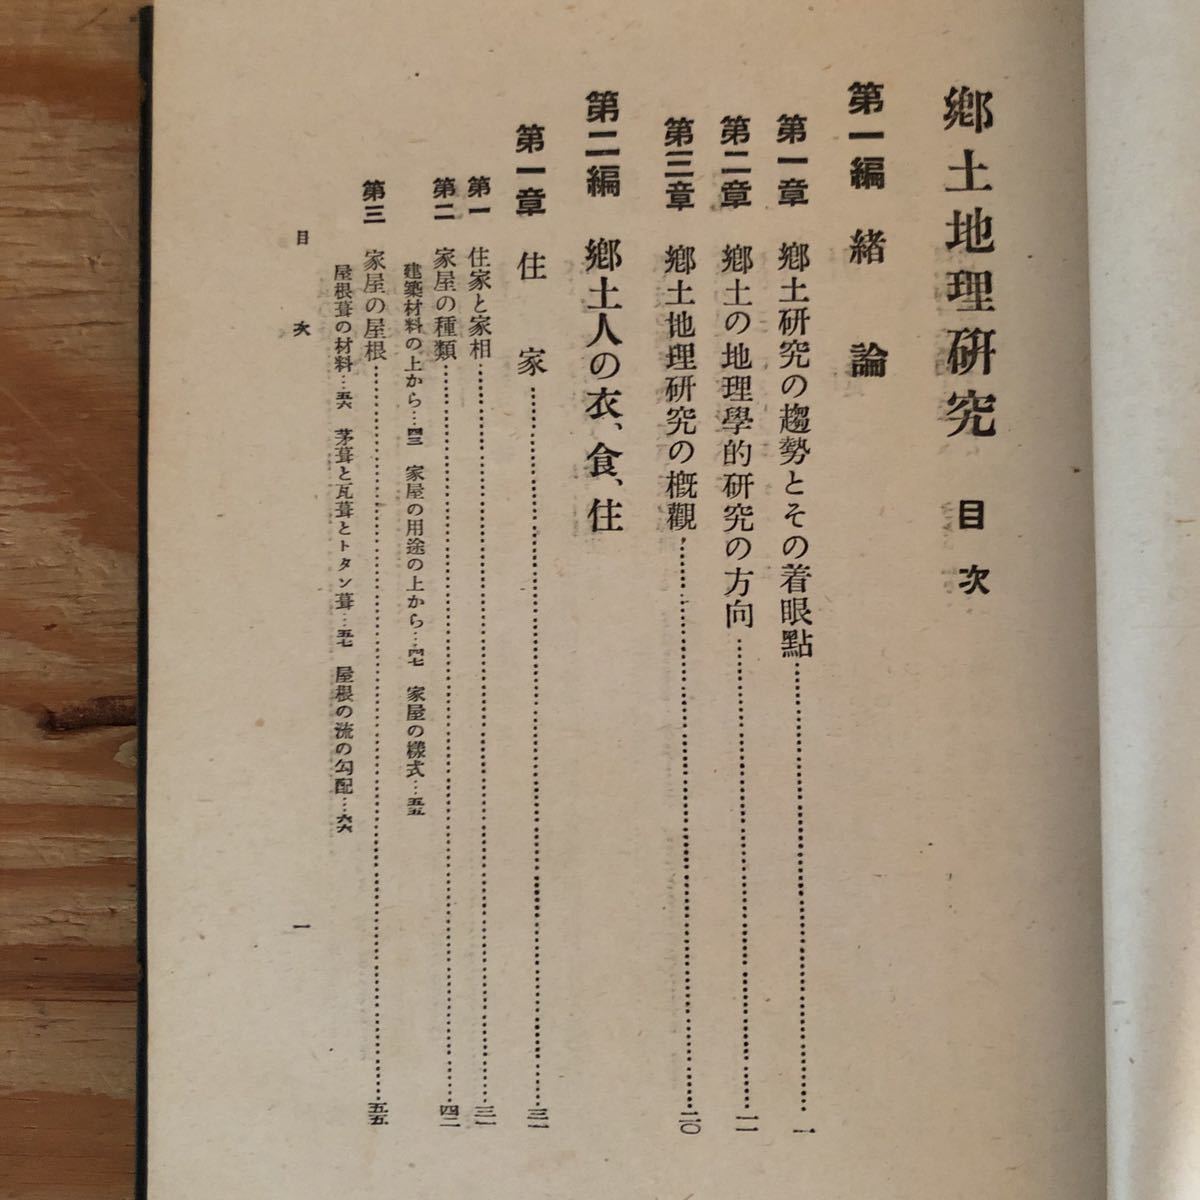 鄕土地理硏究 目次
第一編 緖論
第一章 鄕土硏究の趨勢とその着眼點……一
第二章 鄕土の地理學的硏究の方向……一一
第三章 鄕土地理硏究の槪觀……二〇
第二編 鄕土人の衣、食、住
第一章 住家……三一
第一 住家と家相……三一
第二 家屋の種類……四二
建築材料の上から…四三 家屋の用途の上から…四七 家屋の樣式…五五
第三 家屋の屋根……五五
屋根葺の材料…五六 茅葺と瓦葺とトタン葺…五七 屋根の流の勾配…六六
目次 一